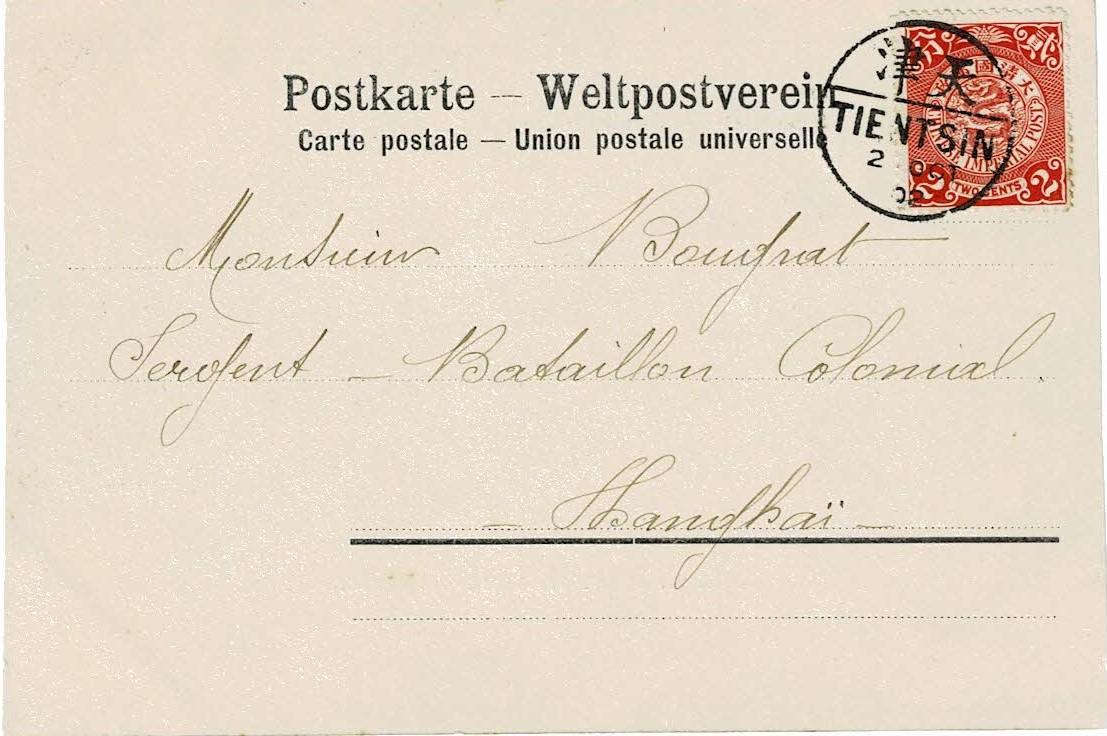 Postkarte — Weltpostverein
Carte postale — Union postale universelle
天津
TIENTSIN
2
02
貳 分
大清國
CHINESE IMPERIAL POST
2 TWO CENTS 2
Monsieur Bougnat
Sergent - Bataillon Colonial.
- Shanghaï -